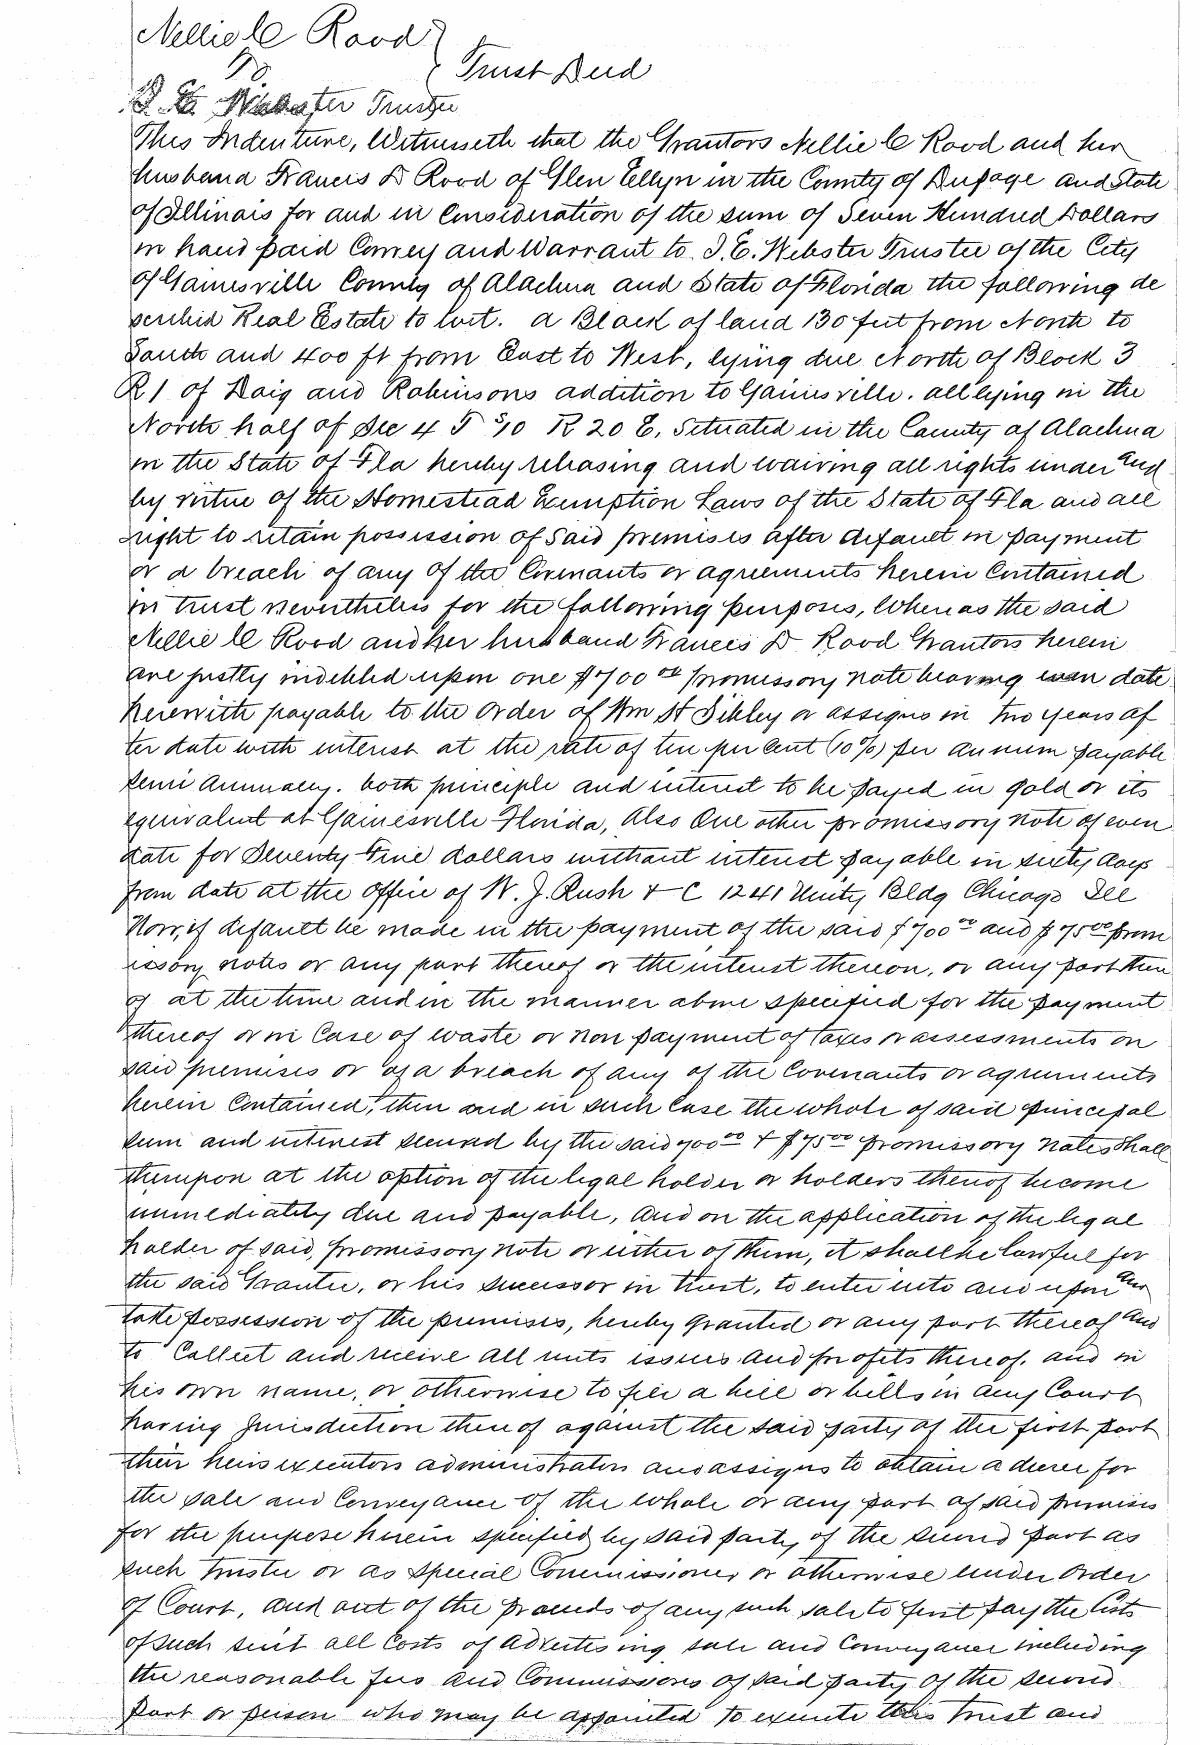 Nellie C Rood
To
Trust Deed
J. E. Webster Trustee
This Indenture, Witnesseth that the Grantors Nellie C Rood and her
husband Francis D Rood of Glen Ellyn in the County of Dupage and State
of Illinois for and in Consideration of the sum of Seven Hundred Dollars
in hand paid Convey and Warrant to J. E. Webster Trustee of the City
of Gainesville County of Alachua and State of Florida the following de
scribed Real Estate to wit. a Block of land 130 feet from North to
South and 400 ft from East to West, lying due North of Block 3
R1 of Doig and Robinsons addition to Gainesville. all lying in the
North half of Sec 4 T S10 R 20 E, Situated in the County of Alachua
in the State of Fla hereby releasing and waiving all rights under and
by virtue of the Homestead Exemption Laws of the State of Fla and all
right to retain possession of said premises after default in payment
or a breach of any of the Covenants or agreements herein Contained
in trust nevertheless for the following purposes, Whereas the said
Nellie C Rood and her husband Francis D Rood Grantors herein
are justly indebted upon one $700 00 promissory note bearing even date
herewith payable to the order of Wm St or assigns in two years af
ter date with interest at the rate of ten per cent (10%) per annum payable
semi Annually. both principle and interest to be payed in gold or its
equivalent at Gainesville Florida, Also One other promissory note of even
date for Seventy Five dollars without interest payable in sixty days
from date at the office of W. J. Rush & C 1241 Unity Bldg Chicago Ill
Now, if default be made in the payment of the said $700 00 and $75 00 prom
issory notes or any part thereof or the interest thereon, or any part there
of at the time and in the manner above specified for the payment
thereof or in Case of waste or non payment of taxes or assessments on
said premises or of a breach of any of the Covenants or agreements
herein Contained, then and in such Case the whole of said principal
sum and interest secured by the said 700 00 & $75 00 promissory notes shall
thereupon at the option of the legal holder or holders thereof become
immediately due and payable, And on the application of the legal
holder of said promissory note or either of them, it shall be lawful for
the said Grantee, or his successor in trust, to enter into and upon and
take possession of the premises, hereby granted or any part thereof and
to Collect and receive all rents issues and profits thereof. and in
his own name, or otherwise to file a bill or bills in any Court
having Jurisdiction thereof against the said party of the first part
their heirs executors administrators and assigns to obtain a decree for
the sale and Conveyance of the whole or any part of said premises
for the purpose herein specified by said party of the second part as
such trustee or as special Commissioner or otherwise under order
of Court, and out of the proceeds of any such sale to first pay the Costs
of such suit all Costs of advertising sale and Conveyance including
the reasonable fees and Commissions of said party of the second
part or person who may be appointed to execute this trust and